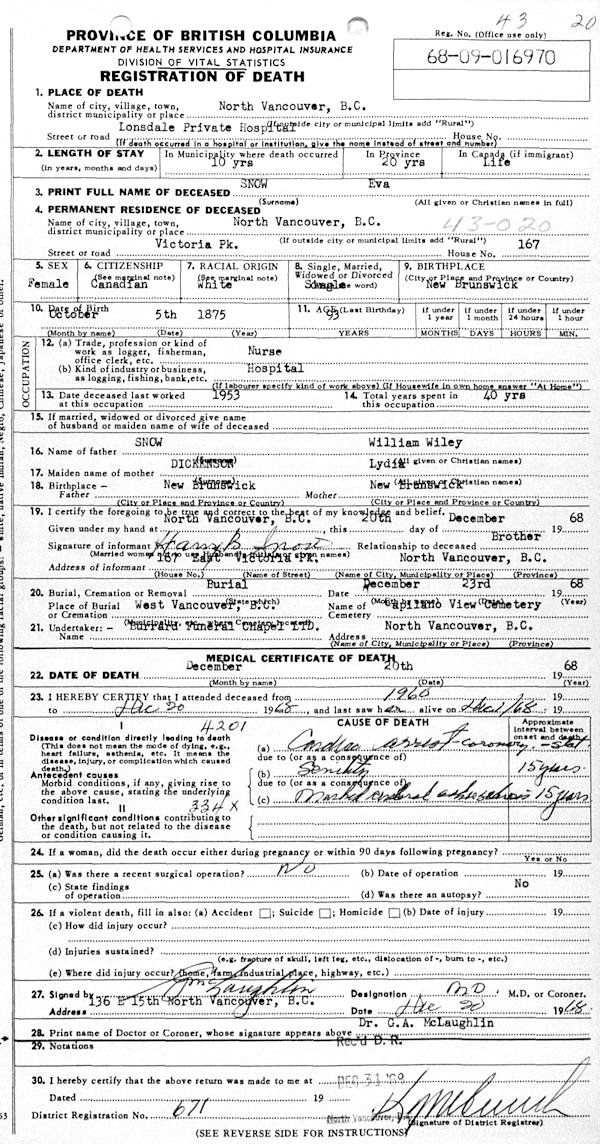 43 20
PROVINCE OF BRITISH COLUMBIA
DEPARTMENT OF HEALTH SERVICES AND HOSPITAL INSURANCE
DIVISION OF VITAL STATISTICS
REGISTRATION OF DEATH
Reg. No. (Office use only)
68-09-016970
1. PLACE OF DEATH
Name of city, village, town, district municipality or place North Vancouver, B.C.
(If outside city or municipal limits add "Rural")
Street or road Lonsdale Private Hospital House No.
(If death occurred in a hospital or institution, give the name instead of street and number)
2. LENGTH OF STAY (in years, months and days)
In Municipality where death occurred 10 yrs
In Province 20 yrs
In Canada (if immigrant) Life
3. PRINT FULL NAME OF DECEASED SNOW Eva
(Surname) (All given or Christian names in full)
4. PERMANENT RESIDENCE OF DECEASED
Name of city, village, town, district municipality or place North Vancouver, B.C. 43-020
(If outside city or municipal limits add "Rural")
Street or road Victoria Pk. House No. 167
5. SEX Female
6. CITIZENSHIP (See marginal note) Canadian
7. RACIAL ORIGIN (See marginal note) White
8. Single, Married, Widowed or Divorced (Write word) Single
9. BIRTHPLACE (City or Place and Province or Country) New Brunswick
10. Date of Birth October 5th 1875
(Month by name) (Date) (Year)
11. AGE (Last Birthday) 93 YEARS
If under 1 year MONTHS
If under 1 month DAYS
If under 24 hours HOURS
If under 1 hour MIN.
OCCUPATION
12. (a) Trade, profession or kind of work as logger, fisherman, office clerk, etc. Nurse
(b) Kind of industry or business, as logging, fishing, bank, etc. Hospital
(If labourer specify kind of work above) (If Housewife in own home answer "At Home")
13. Date deceased last worked at this occupation 1953
14. Total years spent in this occupation 40 yrs
15. If married, widowed or divorced give name of husband or maiden name of wife of deceased
16. Name of father SNOW William Wiley
(Surname) (All given or Christian names)
17. Maiden name of mother DICKENSON Lydia
(Surname) (All given or Christian names)
18. Birthplace – Father New Brunswick Mother New Brunswick
(City or Place and Province or Country) (City or Place and Province or Country)
19. I certify the foregoing to be true and correct to the best of my knowledge and belief.
Given under my hand at North Vancouver, B.C., this 20th day of December 1968
Signature of informant Harry B Snow Relationship to deceased Brother
Address of informant 167 East Victoria Pk. North Vancouver, B.C.
(House No.) (Name of Street) (Name of City, Municipality or Place) (Province)
20. Burial, Cremation or Removal Burial Date December 23rd 1968
(Year)
Place of Burial or Cremation West Vancouver, B.C. Name of Cemetery Capilano View Cemetery
21. Undertaker: – Name Burrard Funeral Chapel LTD. Address North Vancouver, B.C.
(Name of City, Municipality or Place) (Province)
MEDICAL CERTIFICATE OF DEATH
22. DATE OF DEATH December 20th 1968
(Month by name) (Date) (Year)
23. I HEREBY CERTIFY that I attended deceased from 1960
to Dec 20 1968, and last saw her alive on
I 4201
CAUSE OF DEATH
Approximate interval between onset and death
Disease or condition directly leading to death
(This does not mean the mode of dying, e.g., heart failure, asthenia, etc. It means the disease, injury, or complication which caused death.)
(a) Cardiac arrest - coronary - stat
due to (or as a consequence of)
Antecedent causes
Morbid conditions, if any, giving rise to the above cause, stating the underlying condition last.
(b) Senility 15 years
due to (or as a consequence of)
(c) Marked cerebral 15 years
II 334X
Other significant conditions contributing to the death, but not related to the disease or condition causing it.
24. If a woman, did the death occur either during pregnancy or within 90 days following pregnancy?
Yes or No
25. (a) Was there a recent surgical operation? No (b) Date of operation 19
(c) State findings of operation (d) Was there an autopsy? No
26. If a violent death, fill in also: (a) Accident ; Suicide ; Homicide (b) Date of injury 19
(c) How did injury occur?
(d) Injuries sustained?
(e.g. fracture of skull, left leg, etc., dislocation of -, burn to -, etc.)
(e) Where did injury occur? (home, farm, industrial place, highway, etc.)
27. Signed by McLaughlin Designation MD M.D. or Coroner.
Address 136 E 15th North Vancouver, B.C. Date Dec 20 1968
28. Print name of Doctor or Coroner, whose signature appears above Dr. G.A. McLaughlin
29. Notations Rec'd D.R.
30. I hereby certify that the above return was made to me at DEC 31 '68
Dated 19
District Registration No. 671 North Vancouver,
(Signature of District Registrar)
(SEE REVERSE SIDE FOR INSTRUCTIONS)